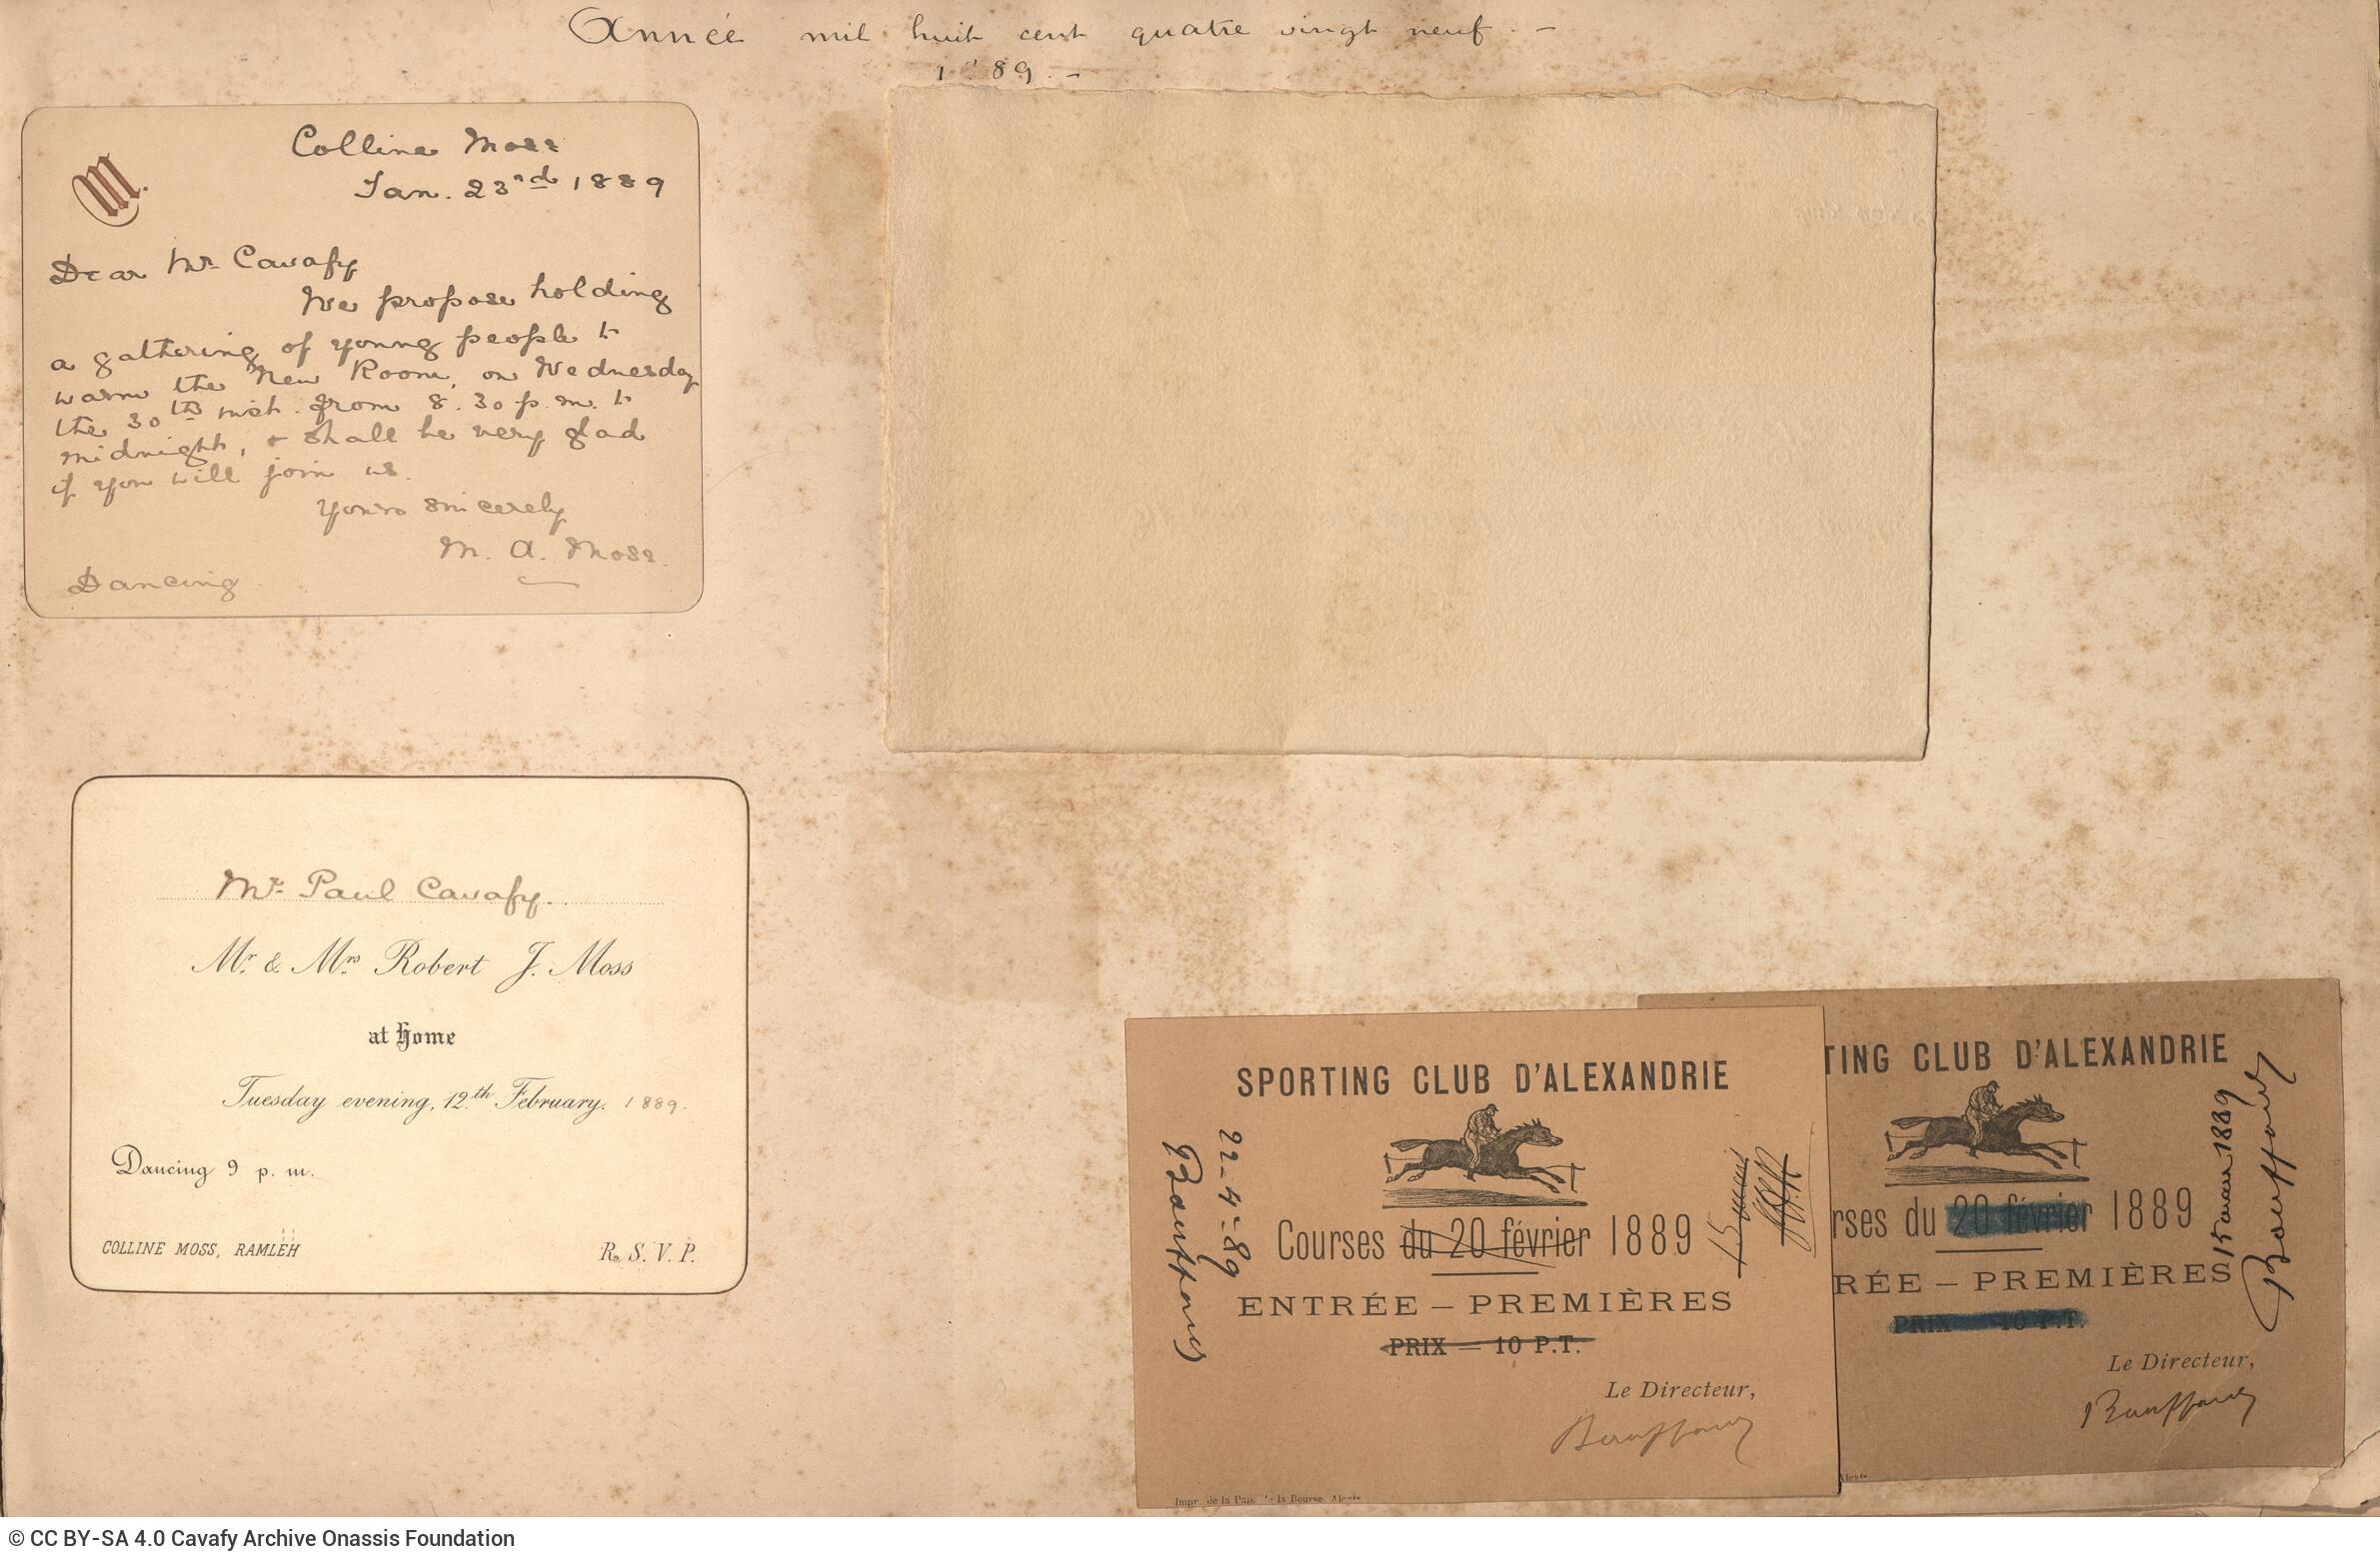 Année mil huit cent quatre vingt neuf. —
1889. —
M.
Colline Moss
Jan. 23rd 1889
Dear Mr Cavafy
We propose holding
a gathering of young people to
warm the New Room, on Wednesday
the 30th inst. from 8.30 p.m. to
midnight, & shall be very glad
if you will join us.
Yours sincerely
M. A. Moss.
Dancing
Mr. Paul Cavafy.
Mr. & Mrs. Robert J. Moss
at Home
Tuesday evening, 12th February. 1889.
Dancing 9 p. m.
COLLINE MOSS, RAMLEH
R. S. V. P.
SPORTING CLUB D'ALEXANDRIE
22-4-89
Courses du 20 février 1889
15 mars
ENTRÉE — PREMIÈRES
PRIX — 10 P.T.
Le Directeur,
Impr. de la Pap. de la Bourse, Alexie
TING CLUB D'ALEXANDRIE
rses du 20 février 1889
15 mars 1889
RÉE — PREMIÈRES
PRIX — 10 P.T.
Le Directeur,
Alexie
© CC BY-SA 4.0 Cavafy Archive Onassis Foundation